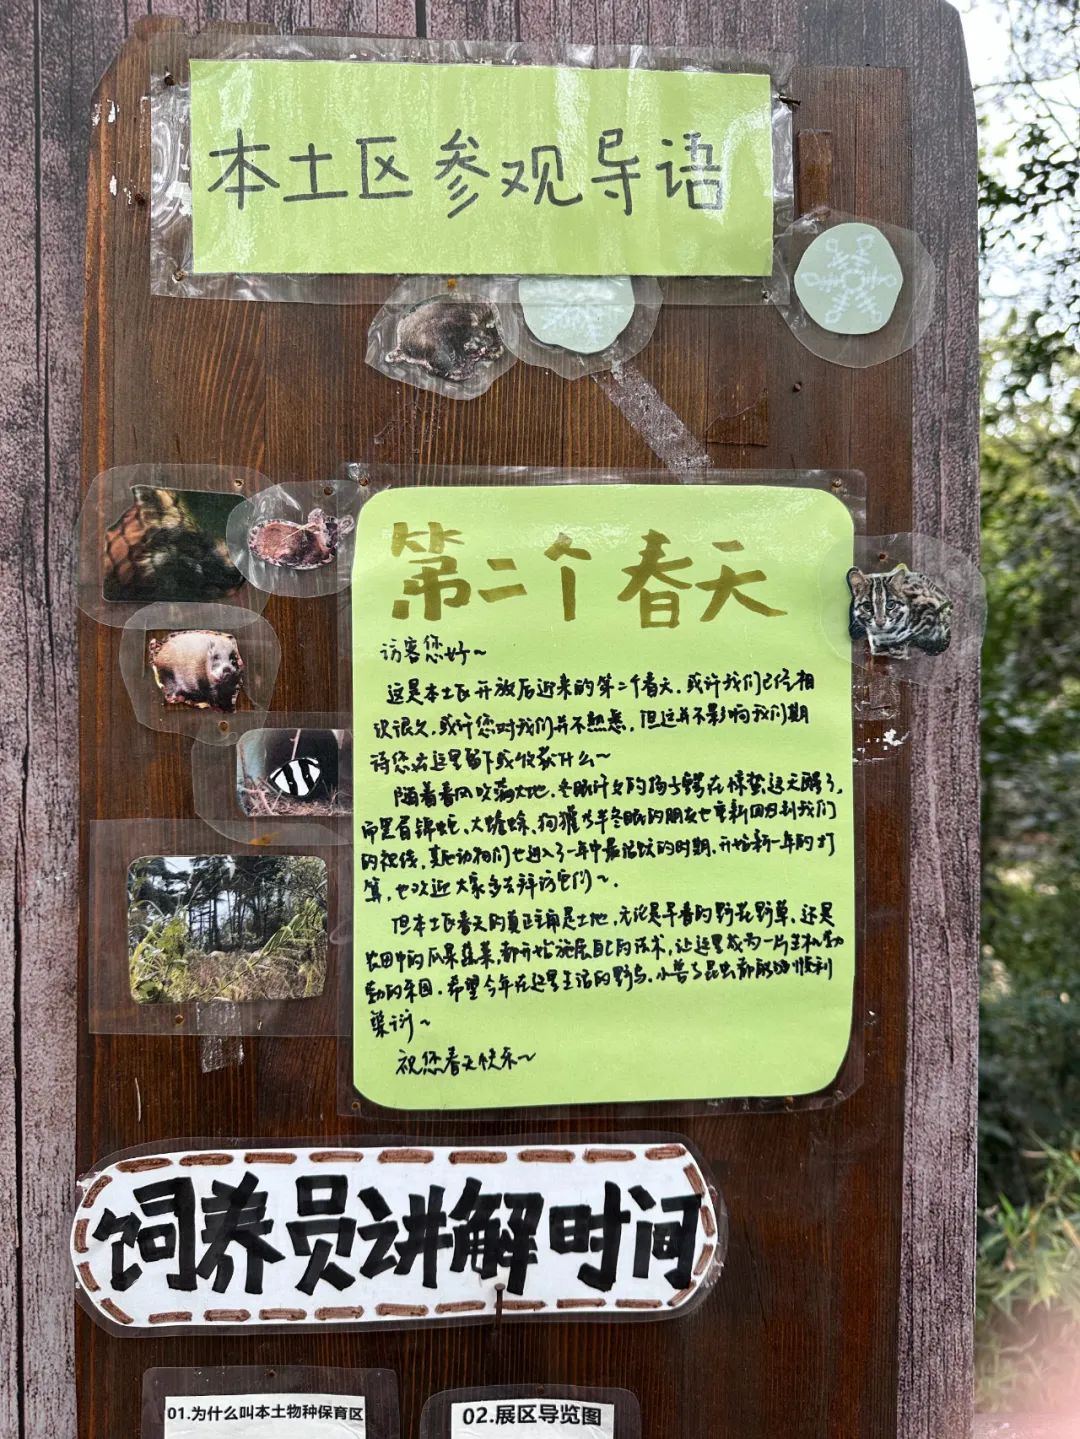 本土区参观导语
第二个春天
访客您好~
这是本土区开放后迎来的第二个春天,或许我们已经相
识很久,或许您对我们并不熟悉,但这并不影响我们期
待您在这里留下或收获什么~
随着春风吹满大地,冬眠许久的扬子鳄在惊蛰这天醒了,
而黑眉锦蛇、大蟾蜍、狗獾等半冬眠的朋友也重新回归到我们
的视线,其他动物们也进入了一年中最活跃的时期,开始新一年的打
算,也欢迎大家多去拜访它们~.
但本土区春天的真正主角是土地,无论是早春的野花野草,还是
农田中的瓜果蔬菜,都开始施展自己的法术,让这里成为一片生机勃
勃的乐园.希望今年在这里生活的野鸟、小兽与昆虫都能够顺利
繁衍~
祝您春天快乐~
饲养员讲解时间
01.为什么叫本土物种保育区
02.展区导览图